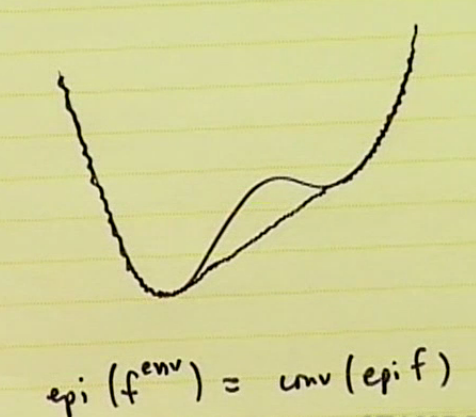 epi (f^env) = conv (epi f)